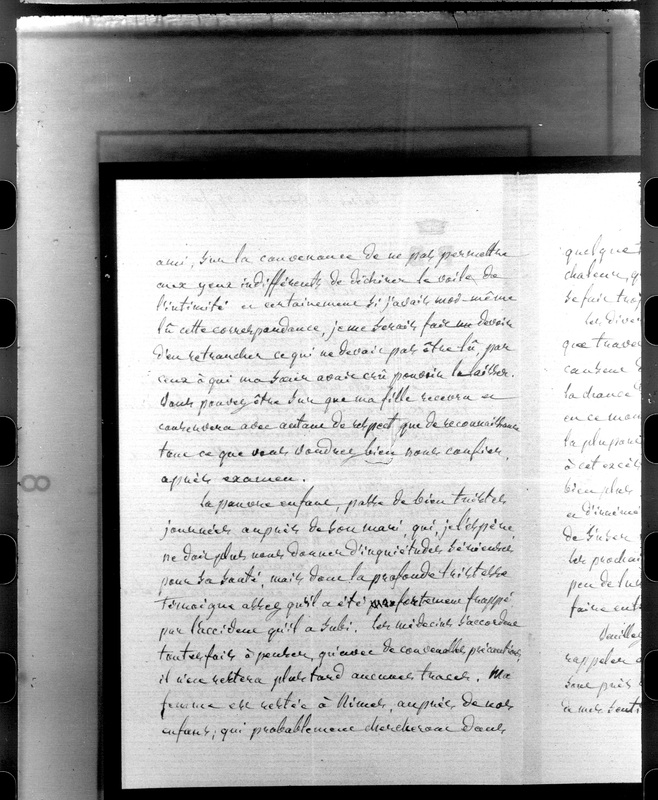 ami, sur la convenance de ne pas permettre
aux yeux indifférents de déchirer le voile de
l'intimité et certainement si j'avais moi-même
lû cette correspondance, je me serais fait un devoir
d'en retrancher ce qui ne devait pas être lû, par
ceux à qui ma sœur avait crû pouvoir le laisser.
Vous pouvez être sûr que ma fille recevra et
conservera avec autant de respect, que de reconnaissance
tout ce que vous voudrez bien nous confier,
après examen.
La pauvre enfant, passe de bien tristes
journées auprès de son mari, qui, je l'espère
ne doit plus nous donner d'inquiétudes sérieuses
pour sa santé, mais dont la profonde tristesse
témoigne assez qu'il a été fortement frappé
par l'accident qu'il a subi. Les médecins s'accordent
toutefois à penser, qu'avec de convenables précautions,
il n'en restera plus tard aucunes traces. Ma
femme est restée à Nimes, auprès de nos
enfans, qui probablement chercheront dans
quelque
chaleur, q
se fait trop
Les diver
que traver
causent d
la chance
en ce mom
la plupart
à cet excès
bien plus
et d'inimi
de
les prochai
peu de lu
faire ent
Veuillez
rappeler
sont près
de mes senti